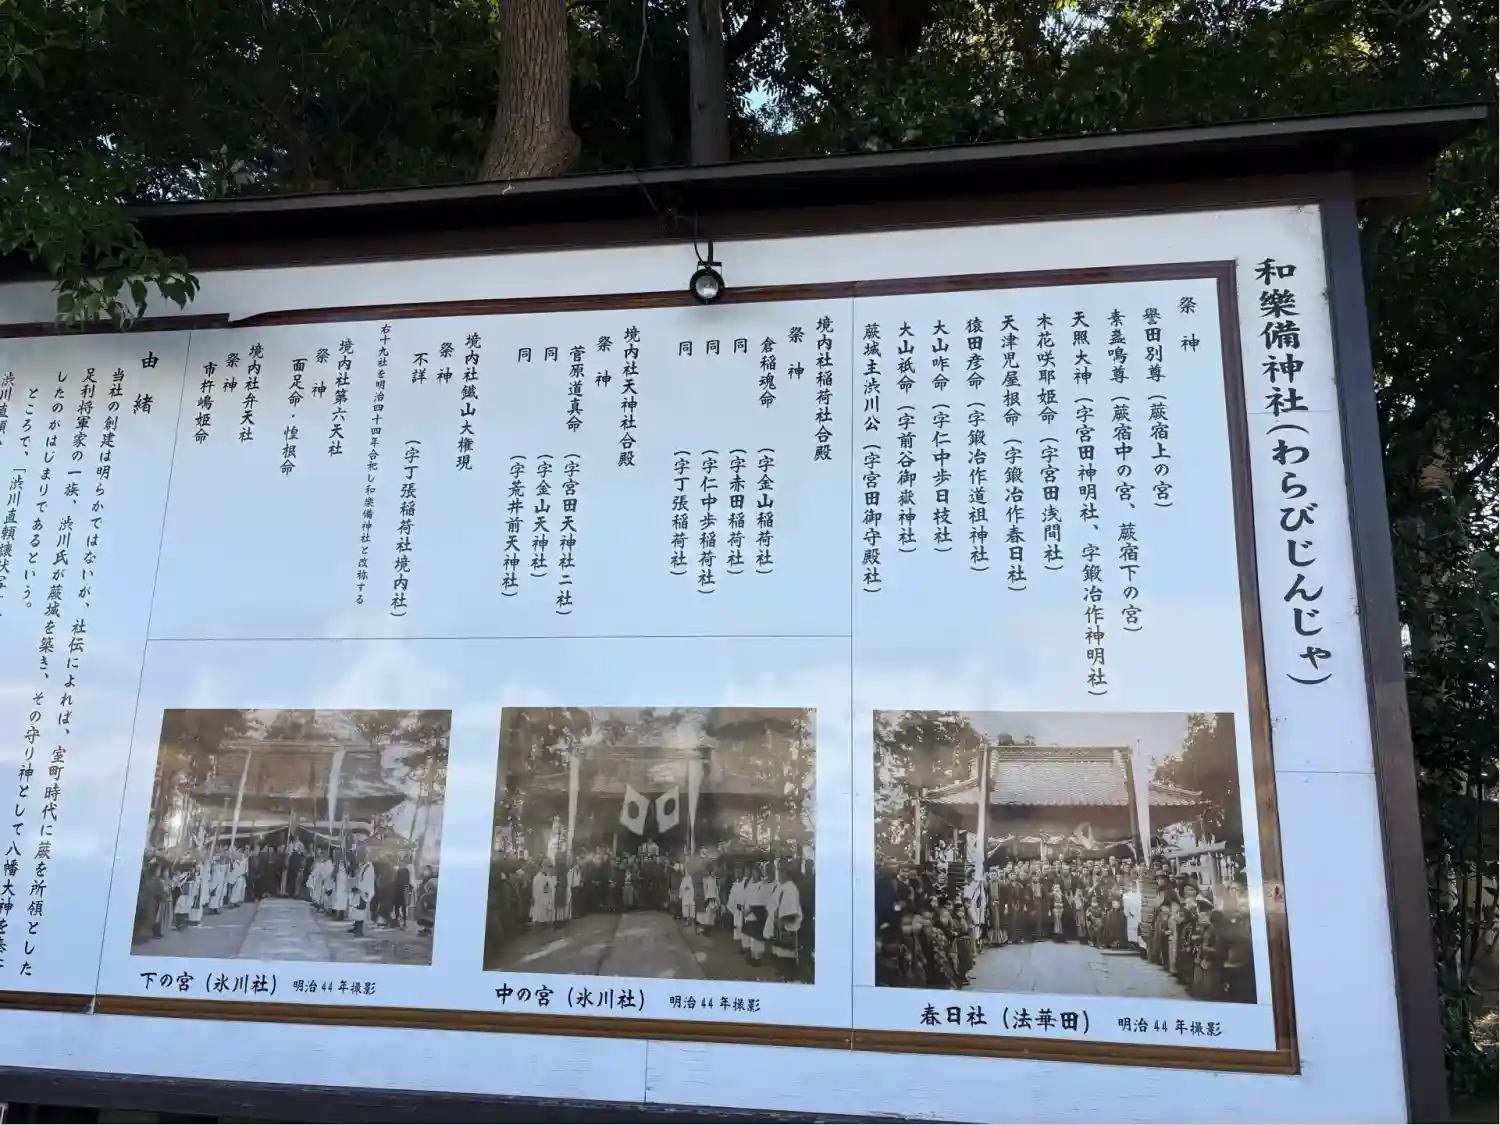 和樂備神社(わらびじんじゃ)
祭神
譽田別尊(蕨宿上の宮)
素盞鳴尊(蕨宿中の宮、蕨宿下の宮)
天照大神(字宮田神明社、字鍛冶作神明社)
木花咲耶姫命(字宮田浅間社)
天津児屋根命(字鍛冶作春日社)
猿田彦命(字鍛冶作道祖神社)
大山咋命(字仁中歩日枝社)
大山祇命(字前谷御嶽神社)
蕨城主渋川公(字宮田御守殿社)
境内社稲荷社合殿
祭神
倉稲魂命(字金山稲荷社)
同(字赤田稲荷社)
同(字仁中歩稲荷社)
同(字丁張稲荷社)
境内社天神社合殿
祭神
菅原道真命(字宮田天神社二社)
同(字金山天神社)
同(字荒井前天神社)
境内社鐵山大権現
祭神
不詳(字丁張稲荷社境内社)
右十九社を明治四十四年合祀し和樂備神社と改称する
境内社第六天社
祭神
面足命・惶根命
境内社弁天社
祭神
市杵嶋姫命
由緒
当社の創建は明らかではないが、社伝によれば、室町時代に蕨を所領とした
足利将軍家の一族、渋川氏が蕨城を築き、その守り神として八幡大神を
したのがはじまりであるという。
ところで、「渋川直頼譲状写」
渋川直頼
春日社(法華田) 明治44年撮影
中の宮(氷川社) 明治44年撮影
下の宮(氷川社) 明治44年撮影